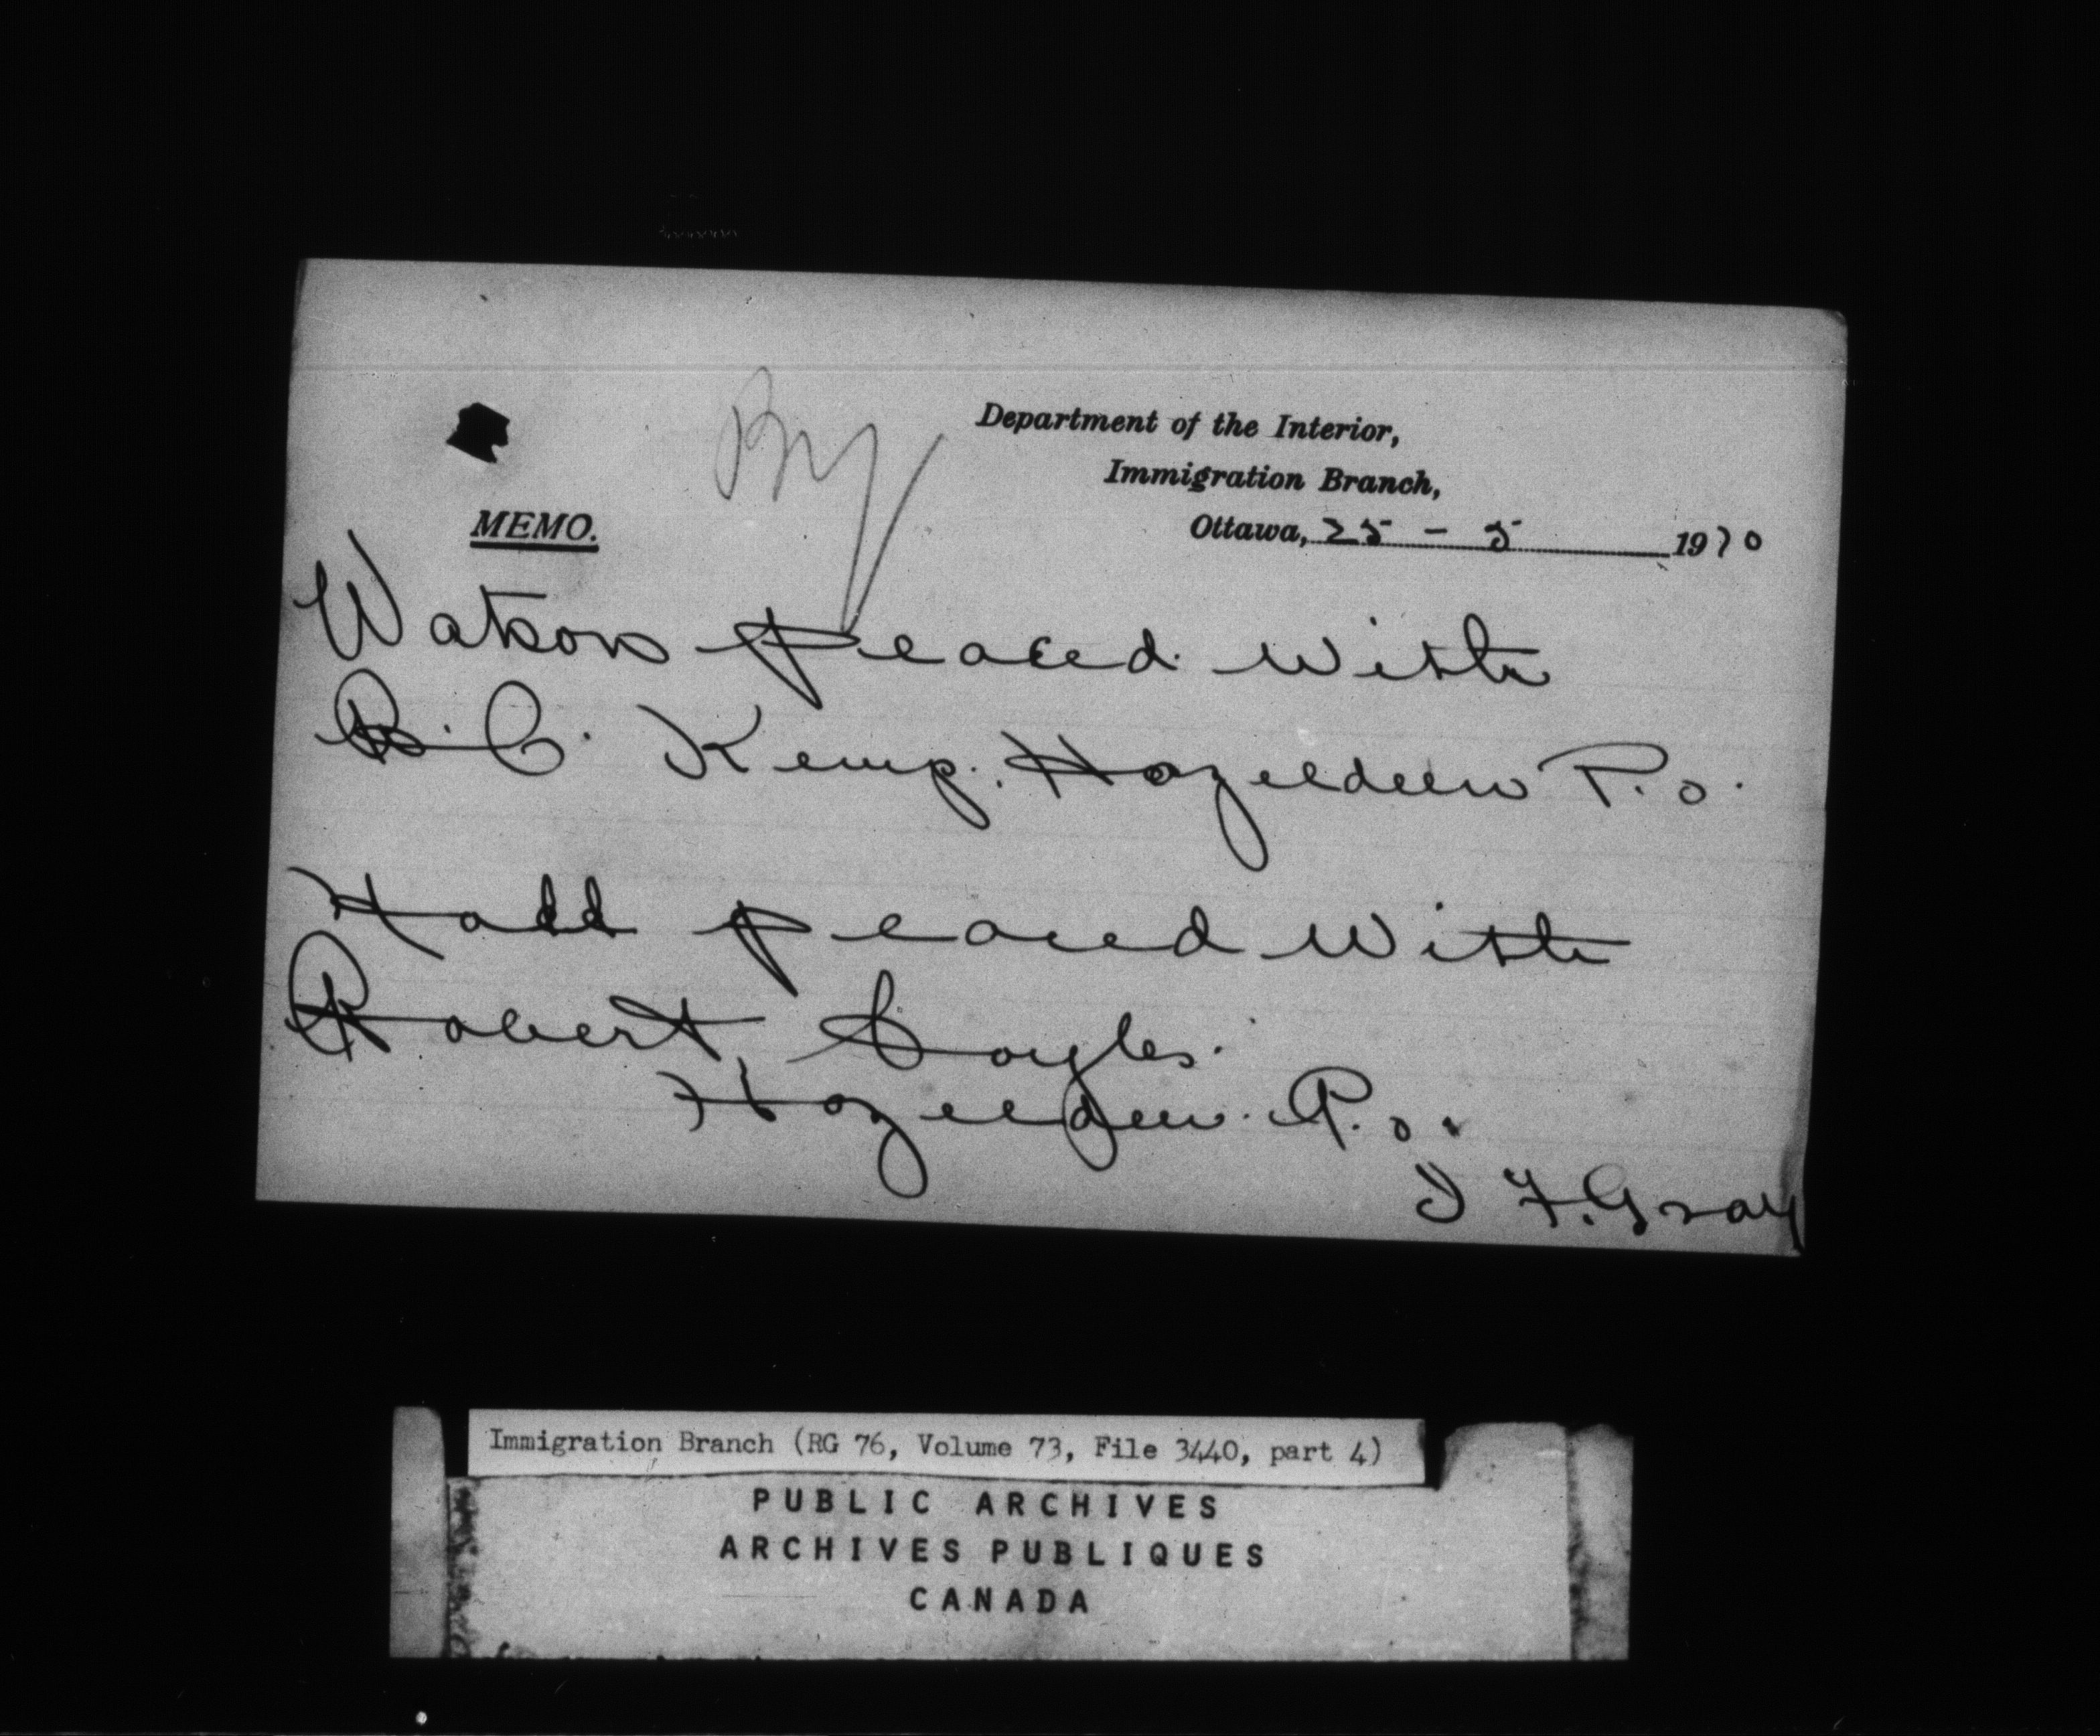 Department of the Interior,
Immigration Branch,
MEMO.
Ottawa, 25 - 5 1910
Watson placed with
B. C. Kemp. Hazeldeen P.o.
Hall placed with
Robert Boyles.
Hazeldeen. P.o.
J F. Gray
Immigration Branch (RG 76, Volume 73, File 3440, part 4)
PUBLIC ARCHIVES
ARCHIVES PUBLIQUES
CANADA